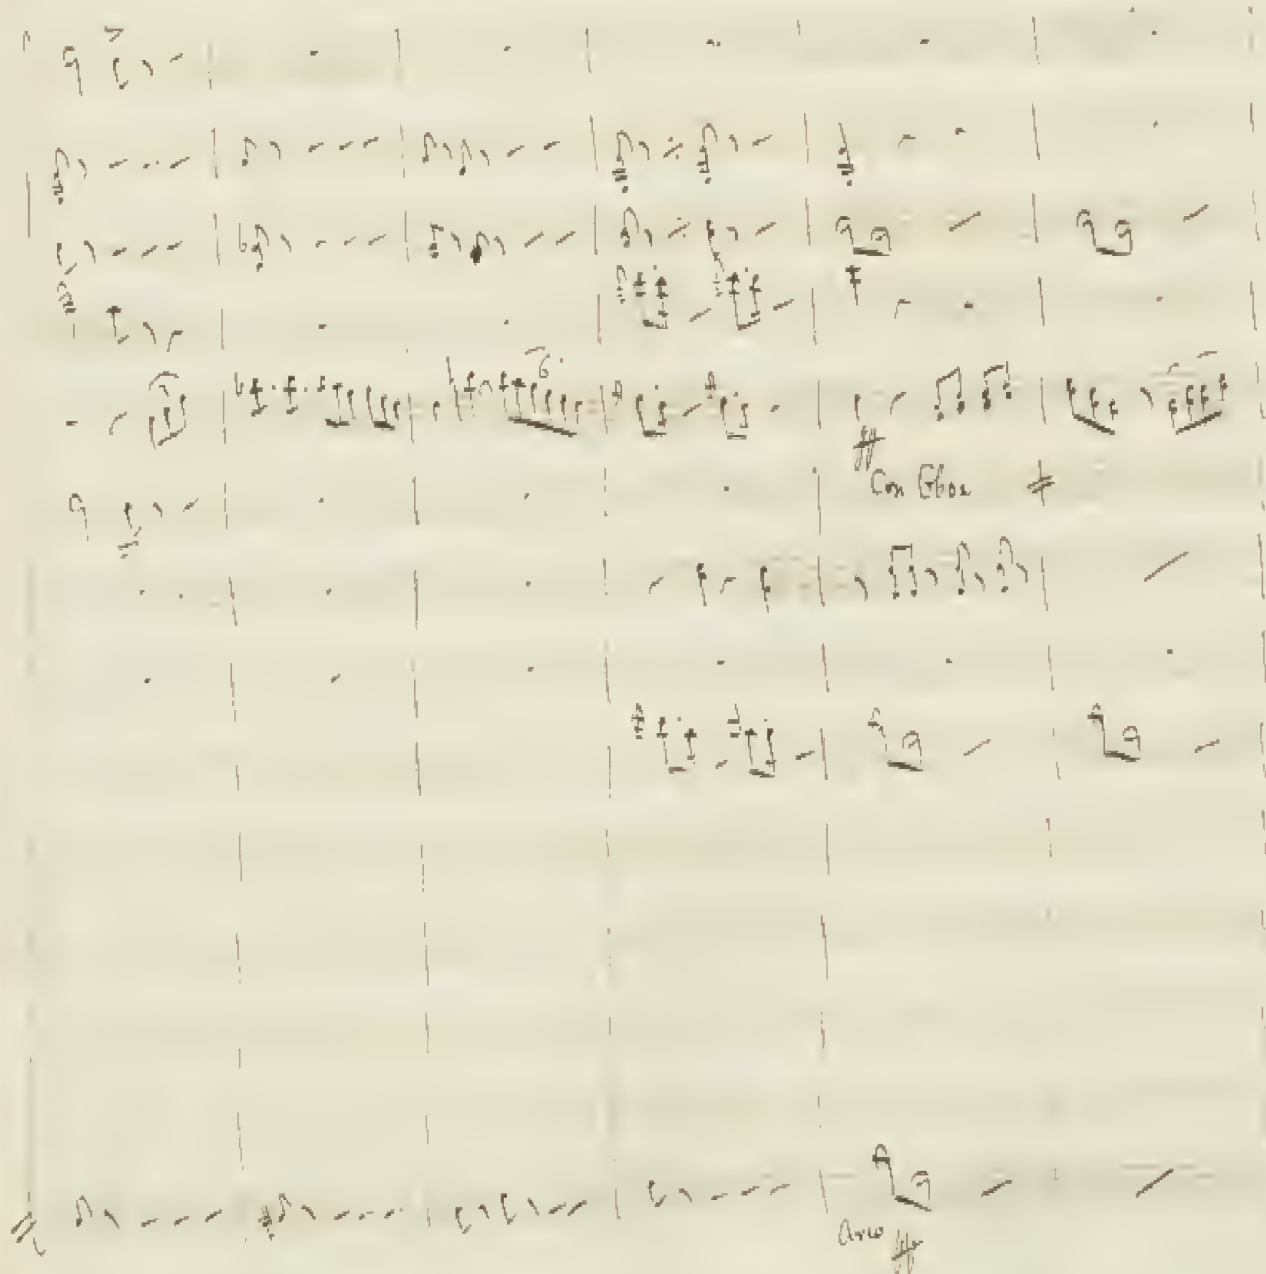 6
ff
Con Oboe
Arco ff